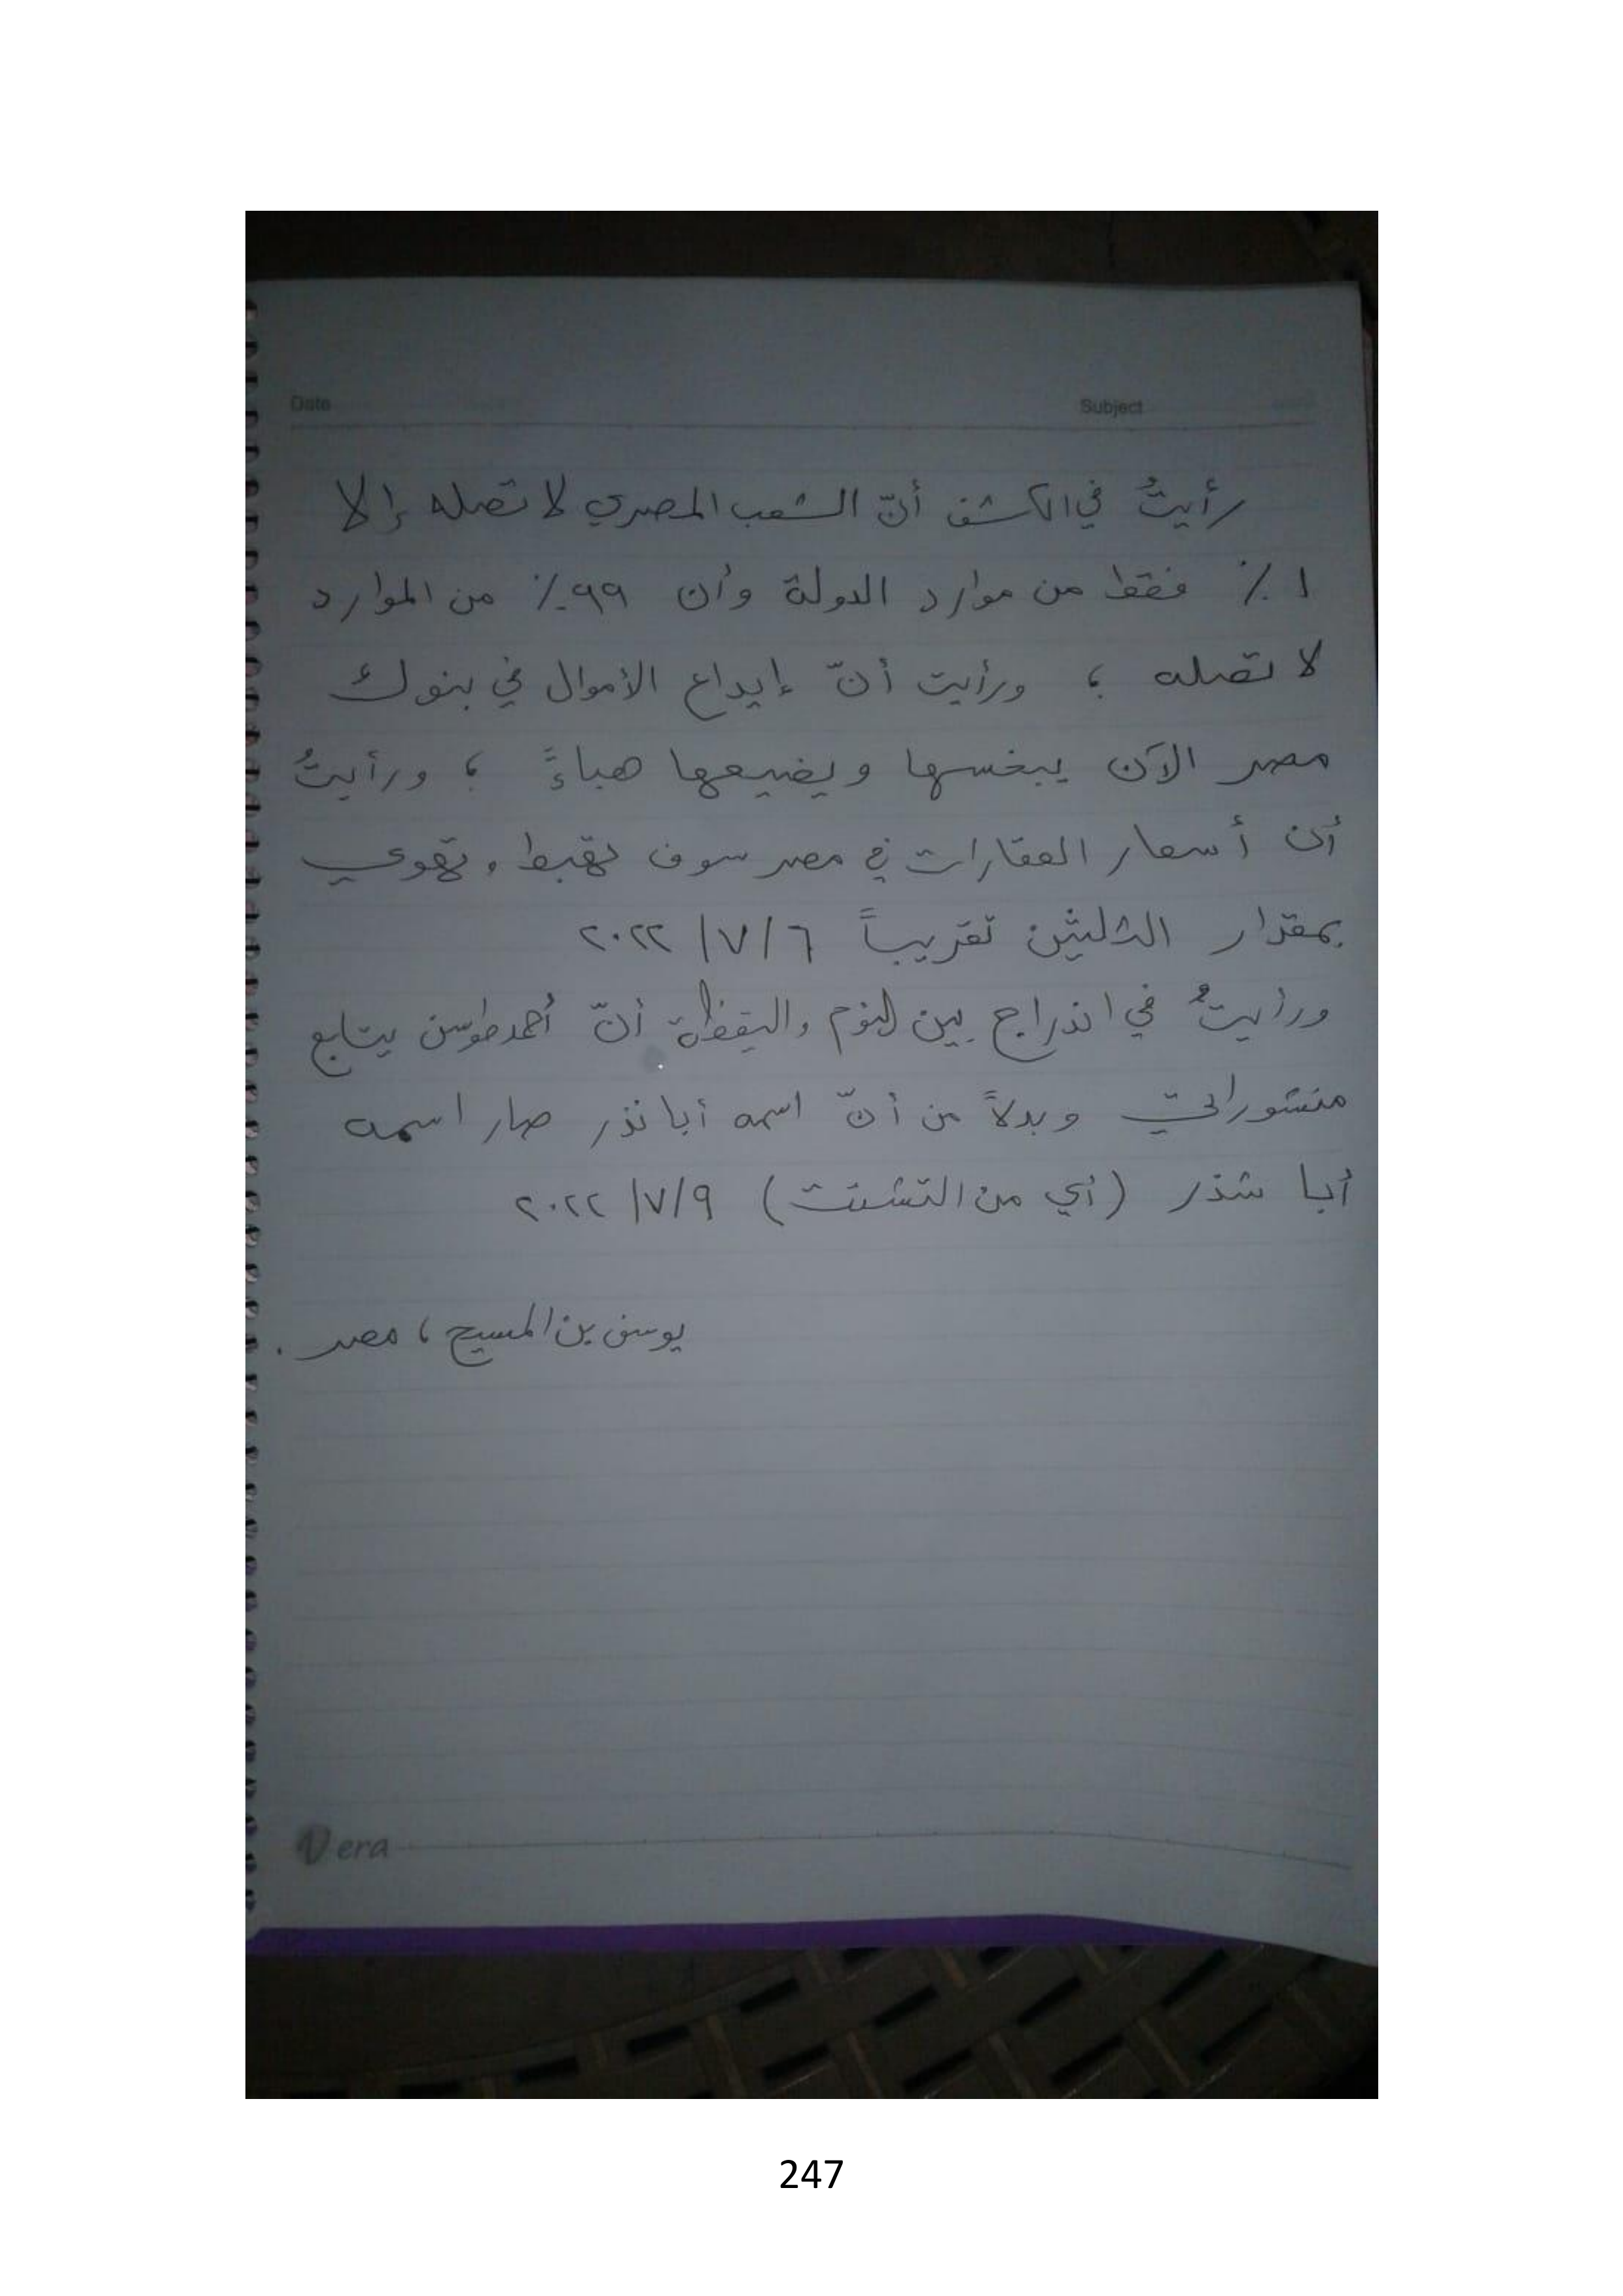 Date Subject
رأيتُ في الكشف أنّ الشعب المصري لا تصله إلا
١٪ فقط من موارد الدولة وأن ٩٩٪ من الموارد
لا تصله ؛ ورأيت أنّ إيداع الأموال في بنوك
مصر الآن يبخسها ويضيعها هباءً ؛ ورأيتُ
أن أسعار العقارات في مصر سوف تهبط وتهوي
بمقدار الثلثين تقريباً ٦/٧/٢٠٢٢
ورأيتُ في اندراج بين النوم واليقظة أنّ أحمد طوسن يتابع
منشوراتي وبدلاً من أنّ اسمه أبا نذر صار اسمه
أبا شذر (أي من التشتت) ٩/٧/٢٠٢٢
يوسف بن المسيح ، مصر .
Vera
247